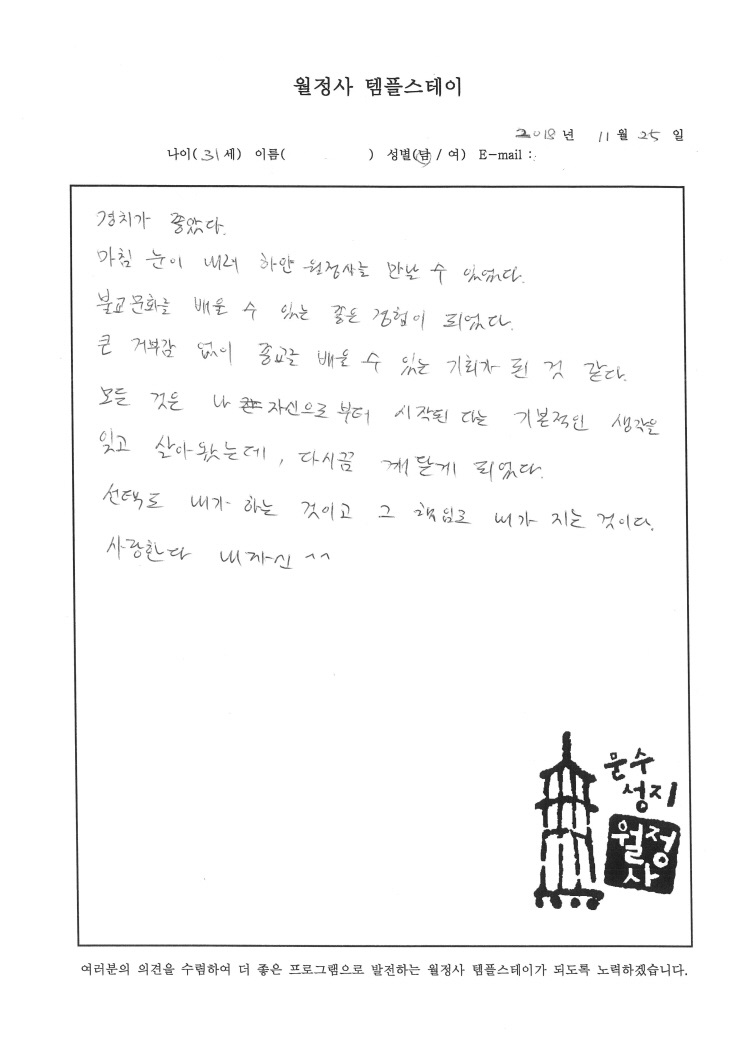 월정사 템플스테이
2018 년 11 월 25 일
나이( 31 세) 이름( ) 성별(남 / 여) E-mail :
경치가 좋았다.
마침 눈이 내려 하얀 월정사를 만날 수 있었다.
불교문화를 배울 수 있는 좋은 경험이 되었다.
큰 거부감 없이 종교를 배울 수 있는 기회가 된 것 같다.
모든 것은 나 자신으로 부터 시작된 다는 기본적인 생각을
잊고 살아왔는데, 다시끔 깨닫게 되었다.
선택도 내가 하는 것이고 그 책임도 내가 지는 것이다.
사랑한다 내자신 ^^
문수
성지
월정
사
여러분의 의견을 수렴하여 더 좋은 프로그램으로 발전하는 월정사 템플스테이가 되도록 노력하겠습니다.